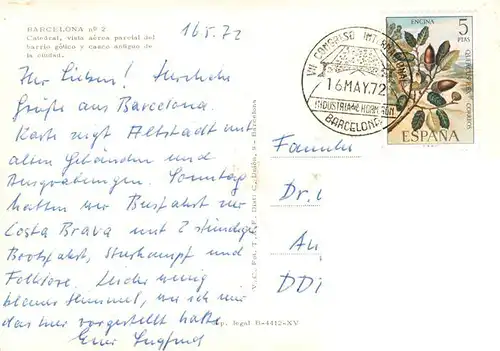 BARCELONA nº 2
Catedral, vista aérea parcial del
barrio gótico y casco antiguo de
la ciudad.
16.5.72
Ihr Lieben! Herzliche
Grüße aus Barcelona.
Karte zeigt Altstadt mit
alten Gebäuden und
Ausgrabungen. Sonntag
hatten wir Busfahrt zur
Costa Brava mit 2 stündiger
Bootsfahrt, Stierkampf und
Folklore. Leider wenig
blauer Himmel, wie ich mir
das hier vorgestellt hatte.
Euer Siegfried
VII CONGRESO
16.MAY.72
INDUSTRIA DE HORMIGON
BARCELONA
ENCINA
5
PTAS
CORREOS
ESPAÑA
Familie
Dr.
An
DDR
legal B-4412-XV